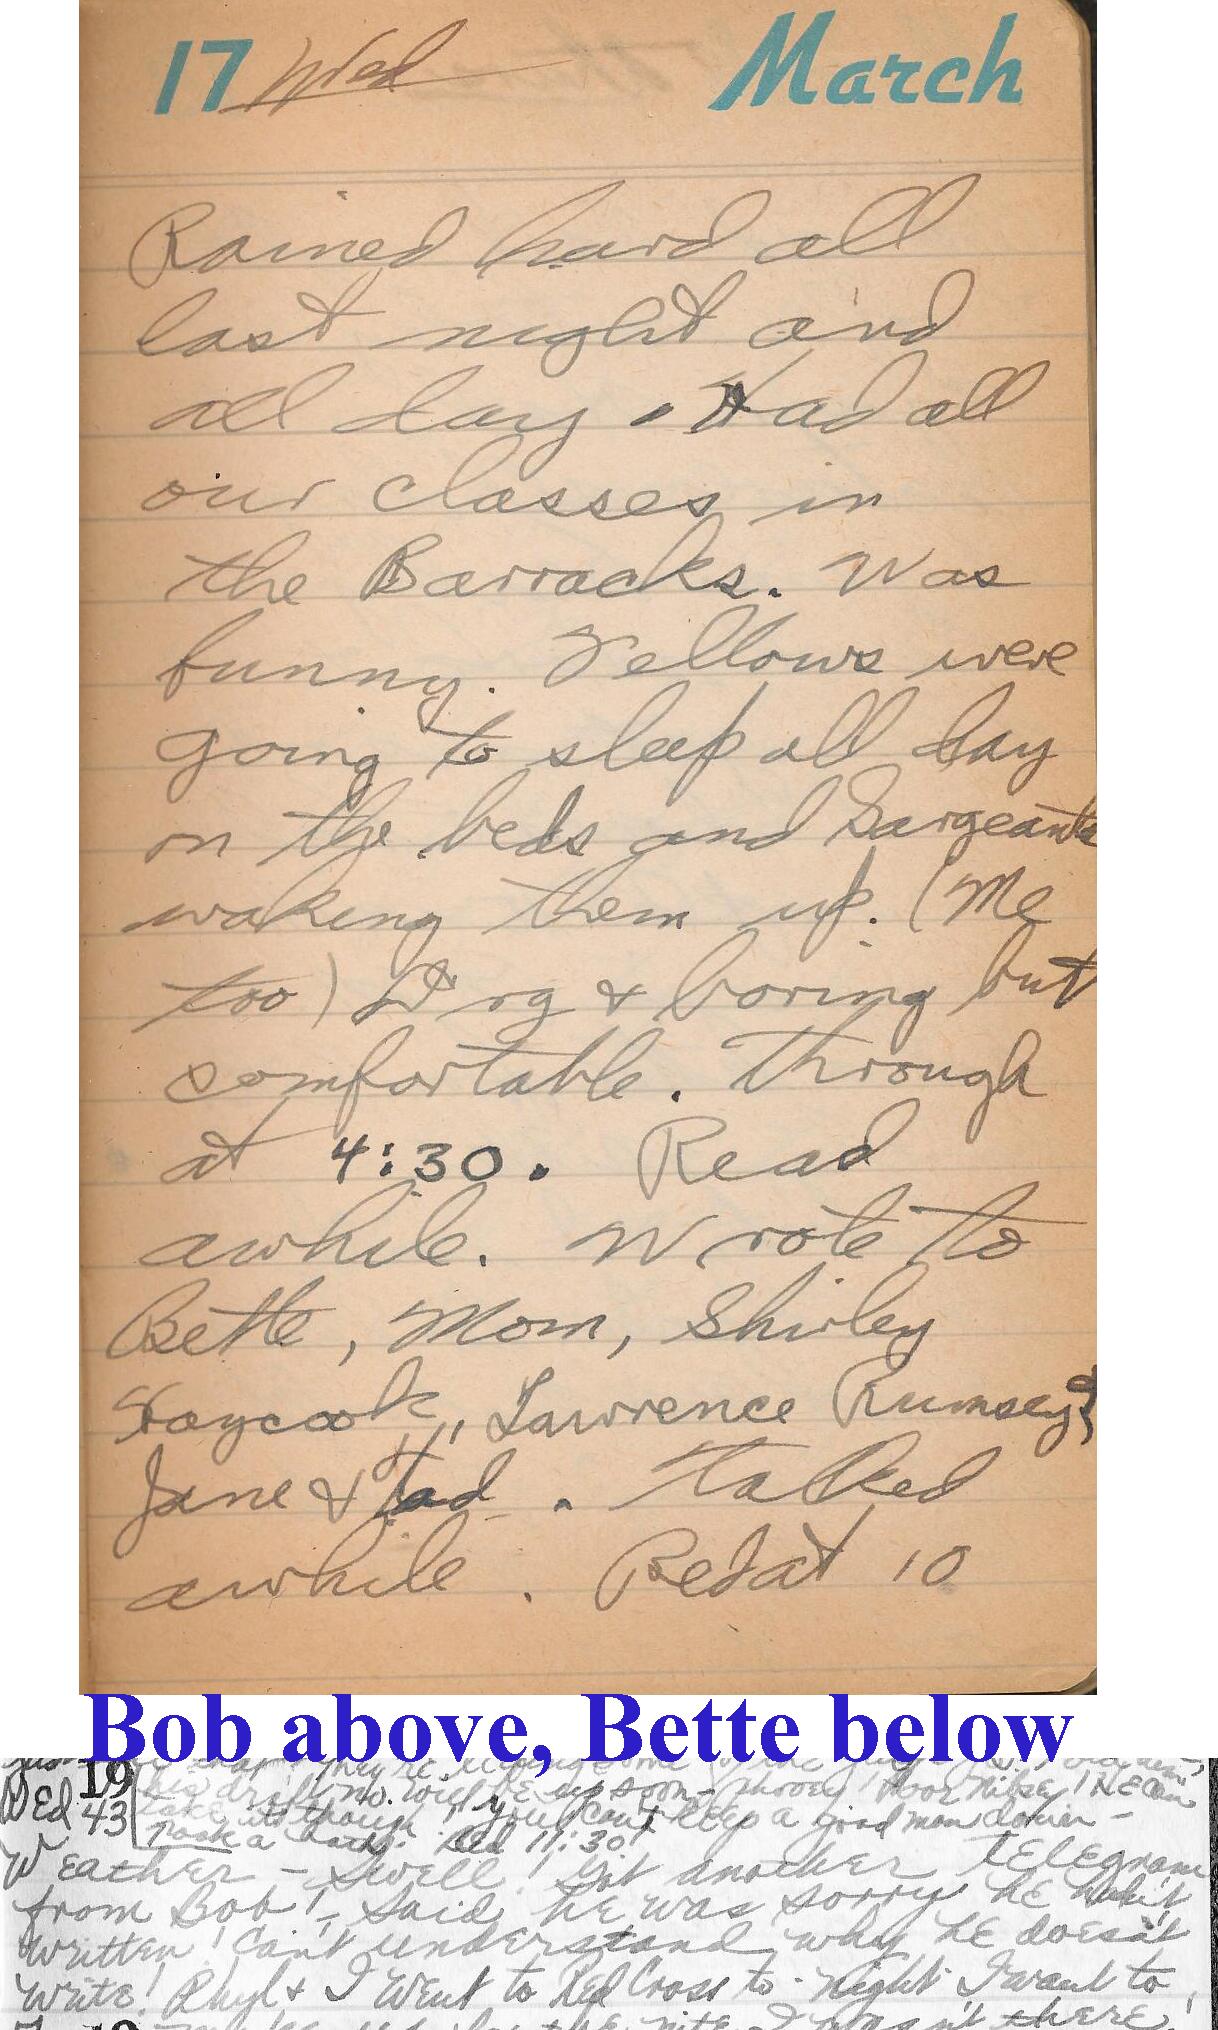 17 Wed March
Rained hard all
last night and
all day. Had all
our classes in
the Barracks. Was
funny. Fellows were
going to sleep all day
on the beds and Sargeants
waking them up. (Me
too) Dry & boring but
comfortable. Through
at 4:30. Read
awhile. Wrote to
Bette, Mom, Shirley
Haycook, Lawrence Rumsey &
Jane & Tad. Talked
awhile. Bed at 10
Bob above, Bette below
19
Wed his draft no. will be up soon - Poor Mike! He can
43 take it though! "You can't keep a good man down -
Took a bath. Bed 11:30!
Weather - Swell! Got another telegram
from Bob! - Said he was sorry he hadn't
written! Can't understand why he doesn't
write! Phyl & I went to Red Cross to-night I want to